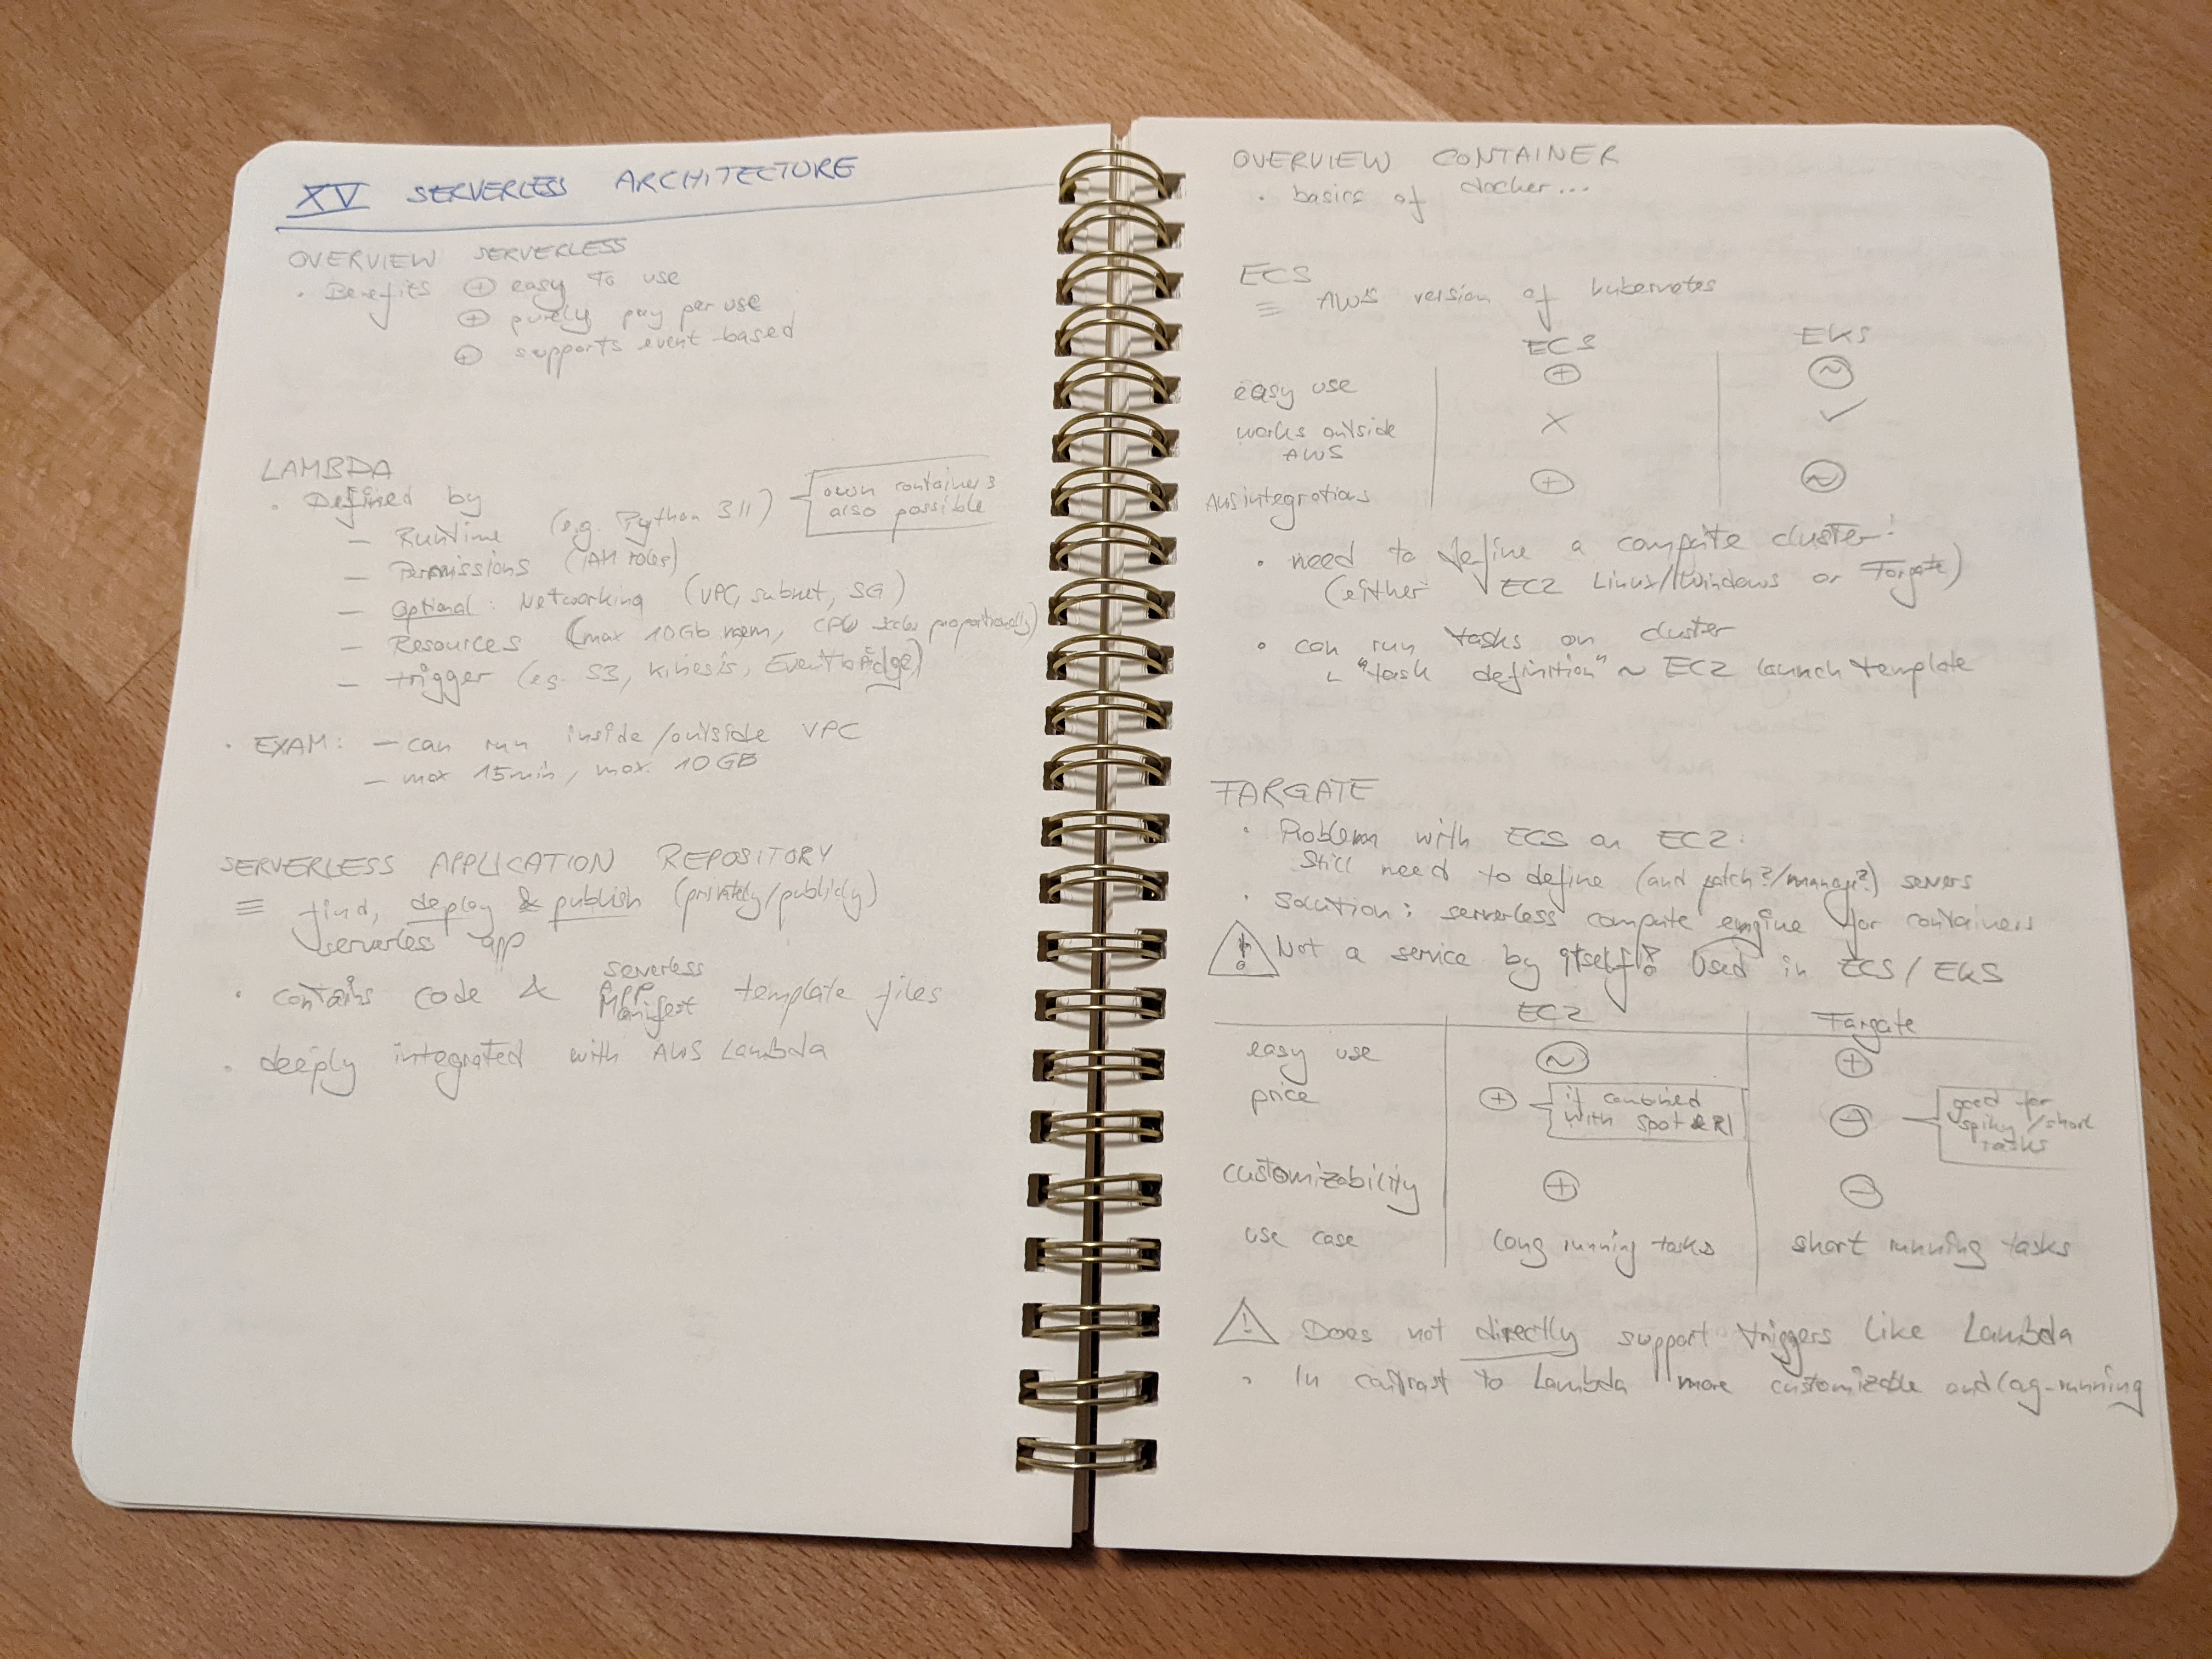 XV SERVERLESS ARCHITECTURE
OVERVIEW SERVERLESS
· Benefits ⊕ easy to use
⊕ purely pay per use
⊕ supports event-based
LAMBDA
· Defined by
— Runtime (e.g. Python 3.11)
own containers
also possible
— Permissions (IAM roles)
— Optional: Networking (VPC, subnet, SG)
— Resources (max 10Gb mem, CPU scales proportionally)
— trigger (e.g. S3, Kinesis, Eventbridge)
· EXAM: — can run inside/outside VPC
— max 15min, max. 10GB
SERVERLESS APPLICATION REPOSITORY
≡ find, deploy & publish (privately/publicly)
serverless app
· contains code & Serverless App Manifest template files
· deeply integrated with AWS Lambda
OVERVIEW CONTAINER
· basics of docker...
ECS
≡ AWS version of kubernetes
ECS EKS
easy use ⊕ ~
works outside AWS × ✓
AWS integrations ⊕ ~
· need to define a compute cluster:
(either EC2 Linux/Windows or Fargate)
· can run tasks on cluster
∟ "task definition" ~ EC2 launch template
FARGATE
· Problem with ECS on EC2:
Still need to define (and patch?/manage?) servers
· Solution: serverless compute engine for containers
⚠ Not a service by itself! Used in ECS/EKS
EC2 Fargate
easy use ~ ⊕
price ⊕ if combined with Spot & RI ⊖ good for spiky/short tasks
customizability ⊕ ⊖
use case long running tasks short running tasks
⚠ Does not directly support triggers like Lambda
· In contrast to Lambda more customizable and long-running